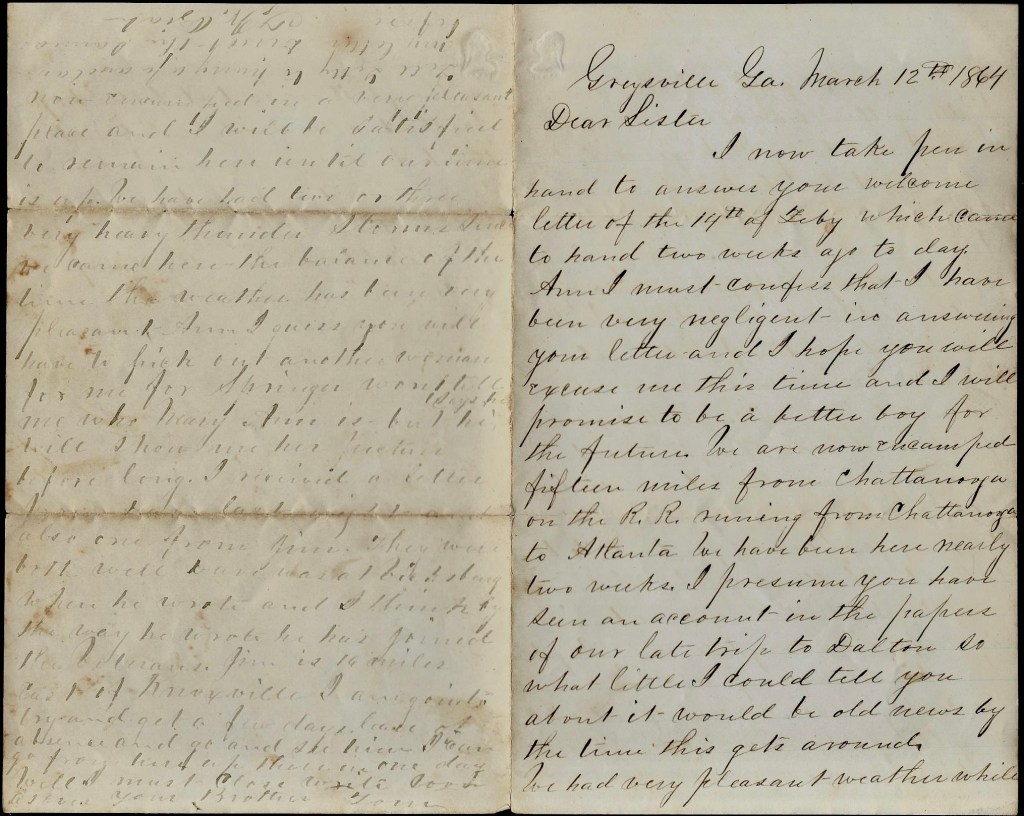 Greysville Ga. March 12th 1864
Dear Sister
I now take pen in
hand to answer your welcome
letter of the 19th of Feby which came
to hand two weeks ago to day.
Ann I must confess that I have
been very negligent in answering
your letter and I hope you will
excuse me this time and I will
promise to be a better boy for
the future. We are now encamped
fifteen miles from Chattanooga
on the R. R. runing from Chattanooga
to Atlanta We have been here nearly
two weeks. I presume you have
seen an account in the papers
of our late trip to Dalton so
what little I could tell you
about it would be old news by
the time this gets around.
We had very pleasant weather while
now encamped in a very pleasant
place and I will be satisfied
to remain here until our time
is up. We have had two or three
very heavy thunder Storms since
we came here the balance of the
time the weather has been very
pleasant Ann I guess you will
have to pick out another woman
for me for Springer wont tell
me who Mary Ann is but he says he
will show me her picture
before long. I received a letter
from last night and
also one from Jim. They were
both well was at Vicksburg
when he wrote and I think by
the way he wrote he has joined
the Veterans. Jim is 16 miles
East of Knoxville I am going to
try and get a few days leave of
absence and go and see him I can
go from here up there in one day
Well I must close write soon
Your Brother Tom
Tell to hurry up and
my letter Direct the same
before